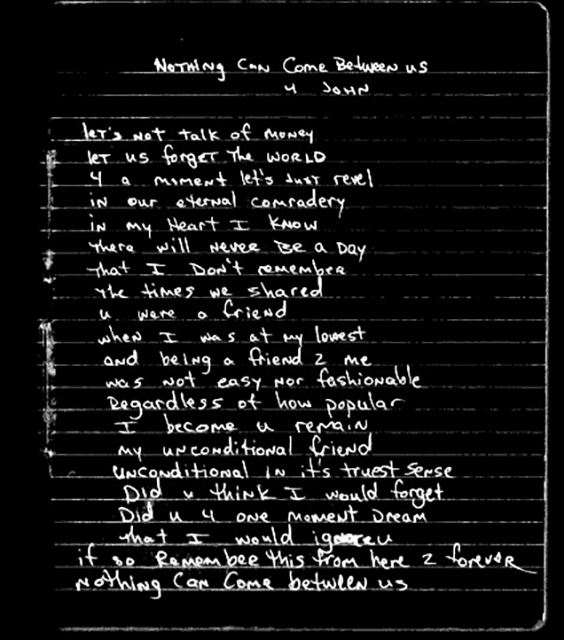 Nothing Can Come Between us
4 John
let's not talk of money
let us forget the world
4 a moment let's just revel
in our eternal comradery
in my Heart I know
there will never be a day
that I Don't remember
the times we shared
u were a friend
when I was at my lowest
and being a friend 2 me
was not easy nor fashionable
Regardless of how popular
I become u remain
my unconditional friend
unconditional in it's truest sense
Did u think I would forget
Did u 4 one moment Dream
that I would ignore u
if so Remember this from here 2 forever
Nothing Can Come between us